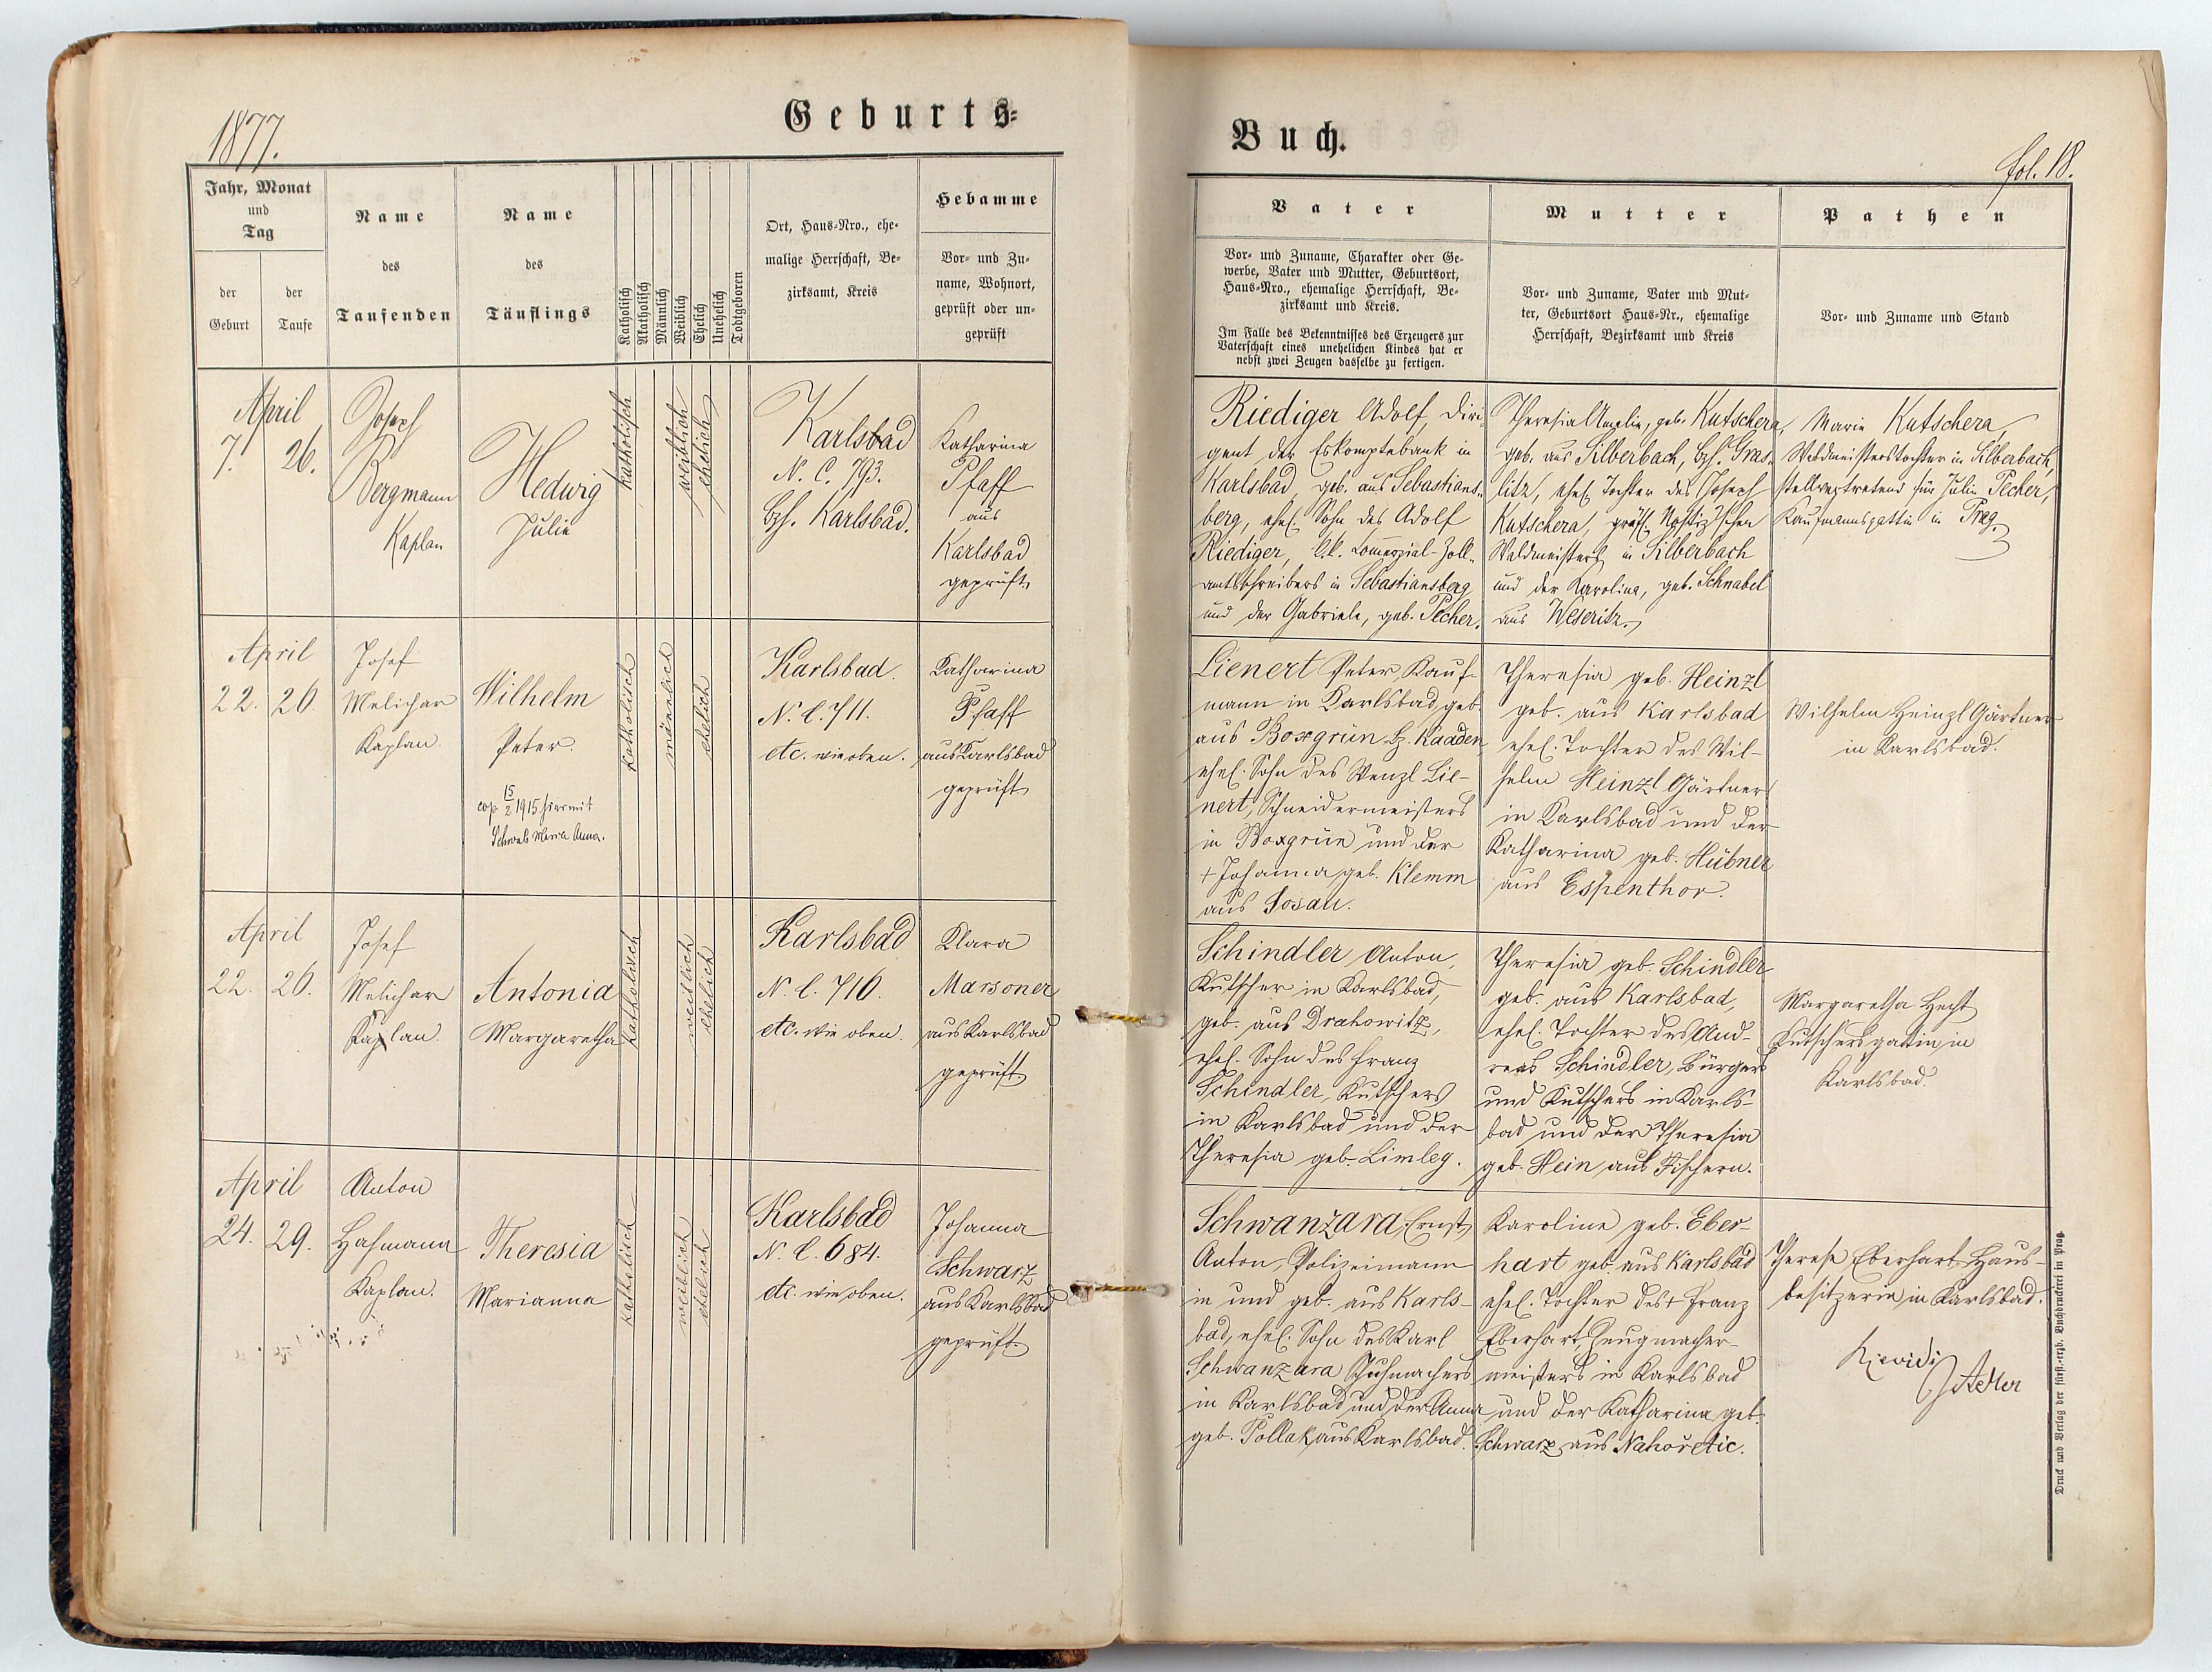 1877.
Geburts-
Jahr, Monat
und
Tag
der
Geburt
der
Taufe
Name
des
Taufenden
Name
des
Täuflings
Katholisch
Akatholisch
Männlich
Weiblich
Ehelich
Unehelich
Todtgeboren
Ort, Haus-Nro., ehe-
malige Herrschaft, Be-
zirksamt, Kreis
Hebamme
Vor- und Zu-
name, Wohnort,
geprüft oder un-
geprüft
April
7. 26.
Joseph
Bergmann
Kaplan
Hedwig
Julie
katholisch
weiblich
ehelich
Karlsbad
N. C. 793.
Bzh. Karlsbad.
Katharina
Pfaff
aus
Karlsbad
geprüft
April
22. 26.
Josef
Melichar
Kaplan
Wilhelm
Peter.
cop. 15/2 1915 hier mit
Schwab Maria Anna.
katholisch
männlich
ehelich
Karlsbad.
N. C. 711.
etc. wie oben.
Katharina
Pfaff
aus Karlsbad
geprüft
April
22. 26.
Josef
Melichar
Kaplan.
Antonia
Margaretha
katholisch
weiblich
ehelich
Karlsbad
N. C. 716.
etc. wie oben.
Klara
Marsoner
aus Karlsbad
geprüft.
April
24. 29.
Anton
Hahmann
Kaplan.
Theresia
Marianna
katholisch
weiblich
ehelich
Karlsbad
N. C. 684.
etc. wie oben.
Johanna
Schwarz
aus Karlsbad
geprüft.
Buch.
fol. 18.
Vater
Vor- und Zuname, Charakter oder Ge-
werbe, Vater und Mutter, Geburtsort,
Haus-Nro., ehemalige Herrschaft, Be-
zirksamt und Kreis.
Im Falle des Bekenntnisses des Erzeugers zur
Vaterschaft eines unehelichen Kindes hat er
nebst zwei Zeugen dasselbe zu fertigen.
Mutter
Vor- und Zuname, Vater und Mut-
ter, Geburtsort Haus-Nr., ehemalige
Herrschaft, Bezirksamt und Kreis
Pathen
Vor- und Zuname und Stand
Riediger Adolf, Diri-
gent der Eskomptebank in
Karlsbad, geb. aus Sebastians-
berg, ehel. Sohn des Adolf
Riediger, k.k. Commerzial-Zoll-
amtsschreibers in Sebastiansberg
und der Gabriele, geb. Pecher.
Theresia Amalia, geb. Kutschera,
geb. aus Silberbach, Bzh. Gras-
litz, ehel. Tochter des Joseph
Kutschera, gräfl. Nostiz'schen
Waldmeisters in Silberbach
und der Karolina, geb. Schnabel
aus Weseritz.
Marie Kutschera,
Waldmeisterstochter in Silberbach,
stellvertretend für Julie Pecher,
Kaufmannsgattin in Prag.
Lienert Peter, Kauf-
mann in Karlsbad, geb.
aus Boxgrün Bz. Kaaden,
ehel. Sohn des Wenzl Lie-
nert, Schneidermeisters
in Boxgrün und der
+ Johanna, geb. Klemm
aus Sosau.
Theresia geb. Heinzl
geb. aus Karlsbad
ehel. Tochter des Wil-
helm Heinzl Gärtners
in Karlsbad und der
Katharina geb. Hübner
aus Espenthor.
Wilhelm Heinzl Gärtner
in Karlsbad.
Schindler Anton,
Kutscher in Karlsbad,
geb. aus Drahowitz,
ehel. Sohn des Franz
Schindler, Kutschers
in Karlsbad und der
Theresia geb. Limley.
Theresia geb. Schindler
geb. aus Karlsbad,
ehel. Tochter des And-
reas Schindler, Bürgers
und Kutschers in Karls-
bad und der Theresia
geb. Hein aus Fischern.
Margaretha Hecht
Kutschersgattin in
Karlsbad.
Schwanzara Ernst
Anton, Polizeimann
in und geb. aus Karls-
bad, ehel. Sohn des Karl
Schwanzara Schuhmachers
in Karlsbad und der Anna
geb. Pollak aus Karlsbad.
Karoline geb. Eber-
hart geb. aus Karlsbad
ehel. Tochter des + Franz
Eberhart, Zeugmacher-
meisters in Karlsbad
und der Katharina geb.
Schwarz aus Nahořetic.
Therese Eberhart Haus-
besitzerin in Karlsbad.
Druck und Verlag der fürst.-erzb. Buchdruckerei in Prag.